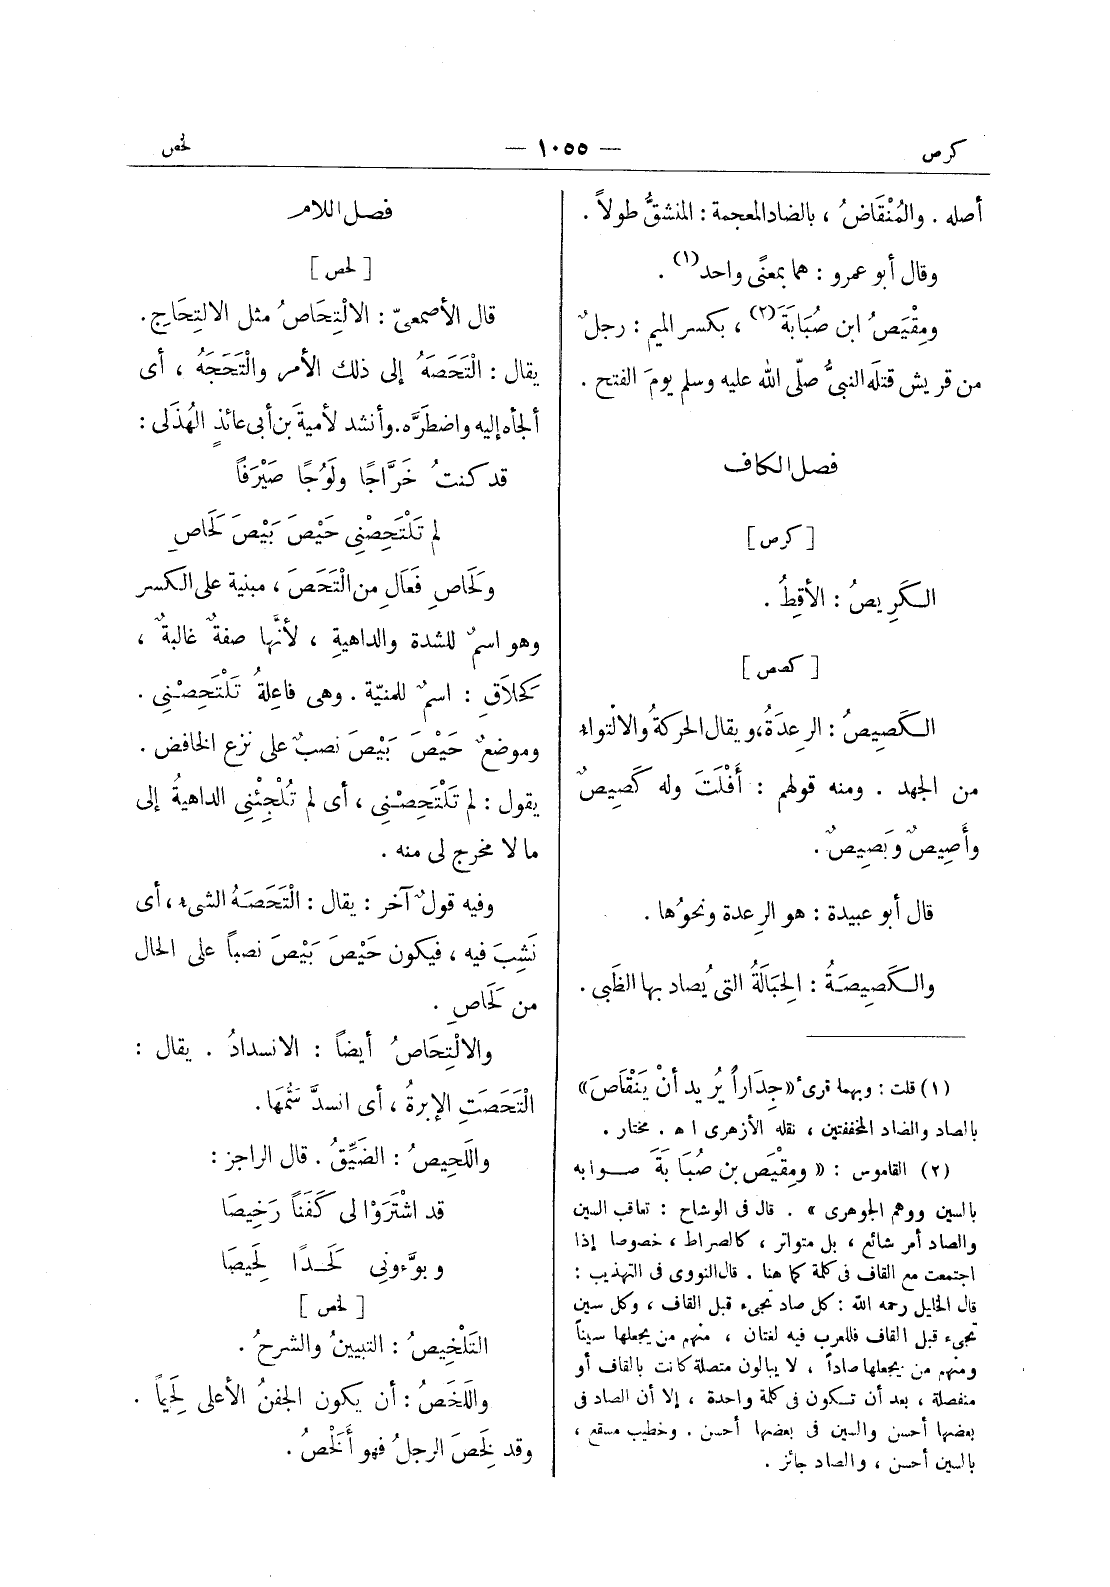 كرص
— ١٠٥٥ —
لخص
أصله . والمُنْقَاضُ ، بالضاد المعجمة : المنشقُّ طولاً .
وقال أبو عمرو : هما بمعنًى واحد(١) .
ومِقْيَصُ ابن صُبَابَةَ(٢) ، بكسر الميم : رجلٌ
من قريش قتله النبىُّ صلّى الله عليه وسلم يومَ الفتح .
فصل الكاف
[ كرص ]
الكَرِيصُ : الأَقِطُ .
[ كصص ]
الكَصِيصُ : الرِعدَةُ، ويقال الحركةُ والالْتواء
من الجهد . ومنه قولهم : أَفْلَتَ وله كَصِيصٌ
وأَصِيصٌ وبَصِيصٌ .
قال أبو عبيدة : هو الرِعدة ونحوُها .
والكَصِيصَةُ : الحِبَالَةُ التى يُصاد بها الظَبى .
(١) قلت : وبهما قرىء «جِدَاراً يُريد أنْ يَنْقَاصَ»
بالصاد والضاد المخففتين ، نقله الأزهرى اه . مختار .
(٢) القاموس : « ومِقْيَص بن صُبَابَةَ صوابه
بالسين ووهم الجوهرى » . قال فى الوشاح : تعاقب السين
والصاد أمر شائع ، بل متواتر ، كالصراط ، خصوصا إذا
اجتمعت مع القاف فى كلمة كما هنا . قال النووى فى التهذيب :
قال الخليل رحمه الله : كل صاد تجىء قبل القاف ، وكل سين
تجىء قبل القاف فللعرب فيه لغتان ، منهم من يجعلها سيناً
ومنهم من يجعلها صاداً ، لا يبالون متصلة كانت بالقاف أو
منفصلة ، بعد أن تكون فى كلمة واحدة ، إلا أن الصاد فى
بعضها أحسن والسين فى بعضها أحسن . وخطيب مسقع ،
بالسين أحسن ، والصاد جائز .
فصل اللام
[ لحص ]
قال الأصمعىّ : الالْتِحَاصُ مثل الالتِحَاجِ .
يقال : الْتَحَصَهُ إلى ذلك الأمر والْتَحَجَهُ ، أى
ألجأه إليه واضطَرَّه. وأنشد لأمية بن أبى عائذٍ الهُذَلى :
قد كنتُ خَرَّاجًا ولَوُجًا صَيْرَفاً
لم تَلْتَحِصْنِى حَيْصَ بَيْصَ لَحَاصِ
ولَحَاصِ فَعَالِ من الْتَحَصَ ، مبنية على الكسر
وهو اسمٌ للشدة والداهيةِ ، لأنَّها صفةٌ غالبةٌ ،
كحَلاَقِ : اسمٌ للمنيّة . وهى فاعِلةُ تَلْتَحِصْنِى .
وموضعُ حَيْصَ بَيْصَ نصبٌ على نزع الخافض .
يقول : لم تَلْتَحِصْنِى ، أى لم تُلْجِئْنِى الداهيةُ إلى
ما لا مخرج لى منه .
وفيه قولٌ آخر : يقال : الْتَحَصَهُ الشىء ، أى
نَشِبَ فيه ، فيكون حَيْصَ بَيْصَ نصباً على الحال
من لَحَاصِ .
والالْتِحَاصُ أيضاً : الانسدادُ . يقال :
الْتَحَصَتِ الإبرةُ ، أى انسدَّ سَمُّهَا .
واللَحِيصُ : الضَيِّقُ . قال الراجز :
قد اشْتَرَوْا لى كَفَنًا رَخِيصَا
وبوَّءونِى لَحَدًا لَحِيصَا
[ لخص ]
التَلْخِيصُ : التبيينُ والشرحُ .
واللَخَصُ : أن يكون الجفنُ الأعلى لَحِيماً .
وقد لَخِصَ الرجلُ فهو أَلْخَصُ .